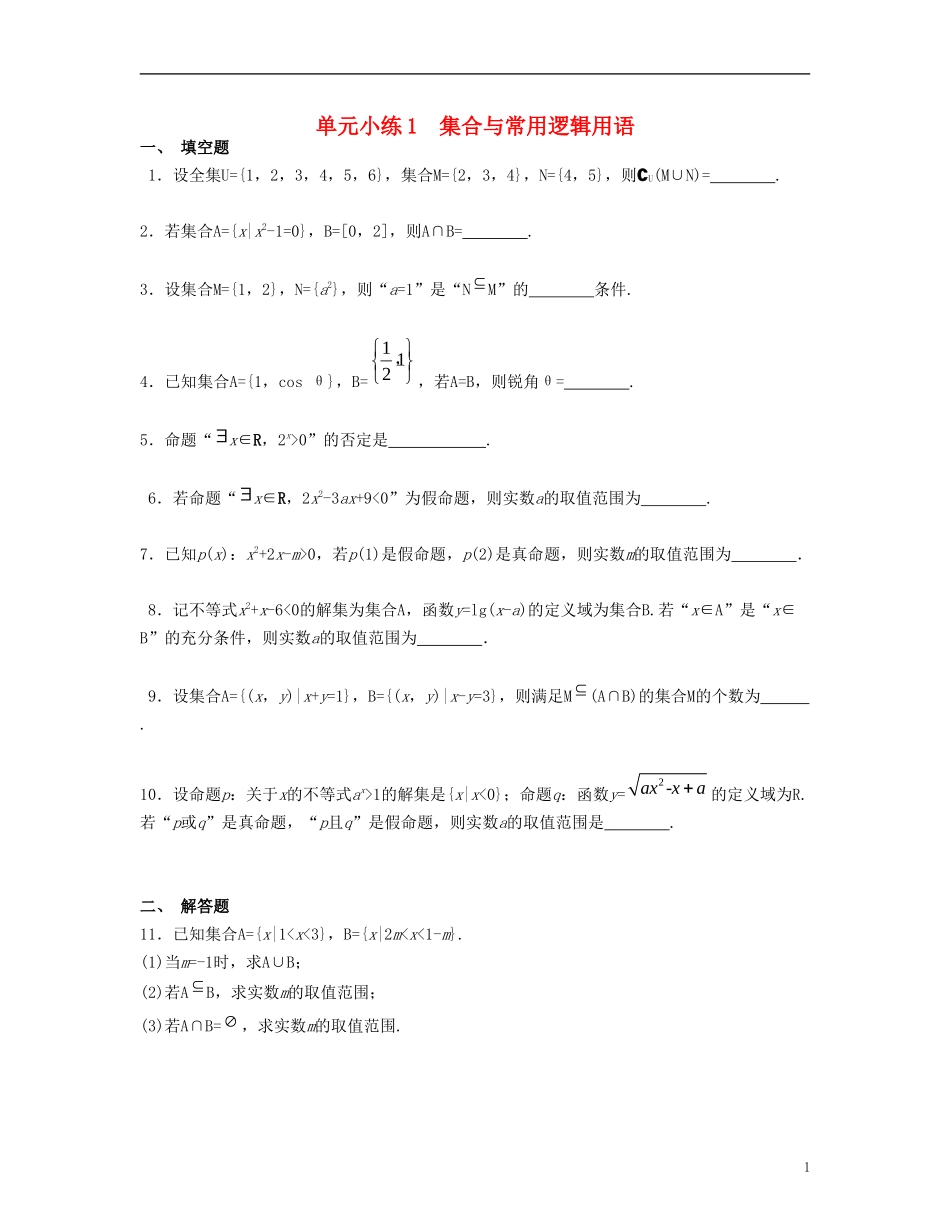 单元小练1 集合与常用逻辑用语
一、 填空题
1．设全集U={1，2，3，4，5，6}，集合M={2，3，4}，N={4，5}，则∁U(M∪N)=________.
2．若集合A={x|x²-1=0}，B=[0，2]，则A∩B=________.
3．设集合M={1，2}，N={a²}，则“a=1”是“N⊆M”的________条件.
4．已知集合A={1，cos θ}，B={1/2，1}，若A=B，则锐角θ=________.
5．命题“∃x∈R，2ˣ>0”的否定是____________.
6．若命题“∃x∈R，2x²-3ax+9<0”为假命题，则实数a的取值范围为________.
7．已知p(x)：x²+2x-m>0，若p(1)是假命题，p(2)是真命题，则实数m的取值范围为________．
8．记不等式x²+x-6<0的解集为集合A，函数y=lg(x-a)的定义域为集合B.若“x∈A”是“x∈
B”的充分条件，则实数a的取值范围为________．
9．设集合A={(x，y)|x+y=1}，B={(x，y)|x-y=3}，则满足M⊆(A∩B)的集合M的个数为______
.
10．设命题p：关于x的不等式aˣ>1的解集是{x|x<0}；命题q：函数y=√(ax²-x+a)的定义域为R.
若“p或q”是真命题，“p且q”是假命题，则实数a的取值范围是________.
二、 解答题
11．已知集合A={x|1<x<3}，B={x|2m<x<1-m}.
(1)当m=-1时，求A∪B；
(2)若A⊆B，求实数m的取值范围；
(3)若A∩B=∅，求实数m的取值范围.
1